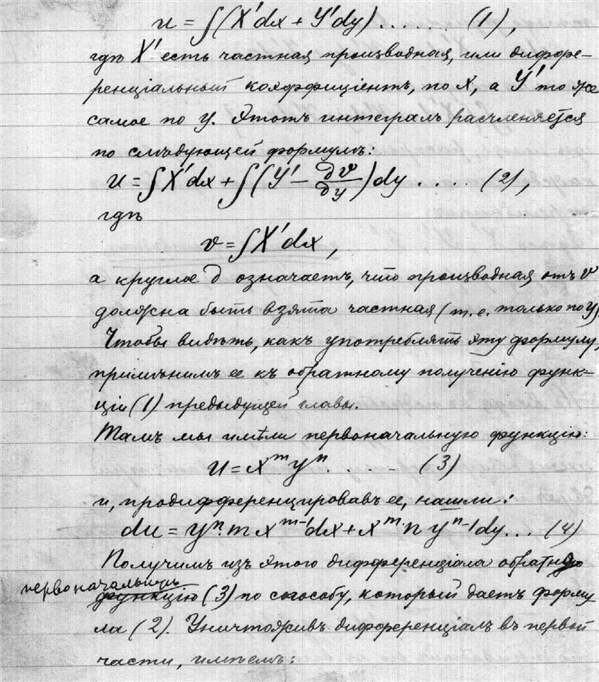 u = ∫(X'dx + Y'dy) . . . . . . (1),
гдѣ X' есть частная производная, или диффе-
ренціальный коэффиціентъ, по x, а Y' то же
самое по y. Этотъ интегралъ расчленяется
по слѣдующей формулѣ:
u = ∫X'dx + ∫(Y' − ∂v/∂y)dy . . . . (2),
гдѣ
v = ∫X'dx,
а круглое ∂ означаетъ, что производная отъ v
должна быть взята частная (т.е. только по y)
Чтобы видѣть, какъ употреблять эту формулу,
примѣнимъ ее къ обратному полученію функ-
ціи (1) предыдущей главы.
Тамъ мы имѣли первоначальную функцію:
u = xᵐyⁿ . . . . (3)
и, продифференцировавъ ее, нашли:
du = yⁿ·m xᵐ⁻¹dx + xᵐ·n yⁿ⁻¹dy... (4)
Получимъ изъ этого дифференціала обратно
первоначальную
функцію (3) по способу, который даетъ форму-
ла (2). Уничтоживъ дифференціалъ въ первой
части, имѣемъ: